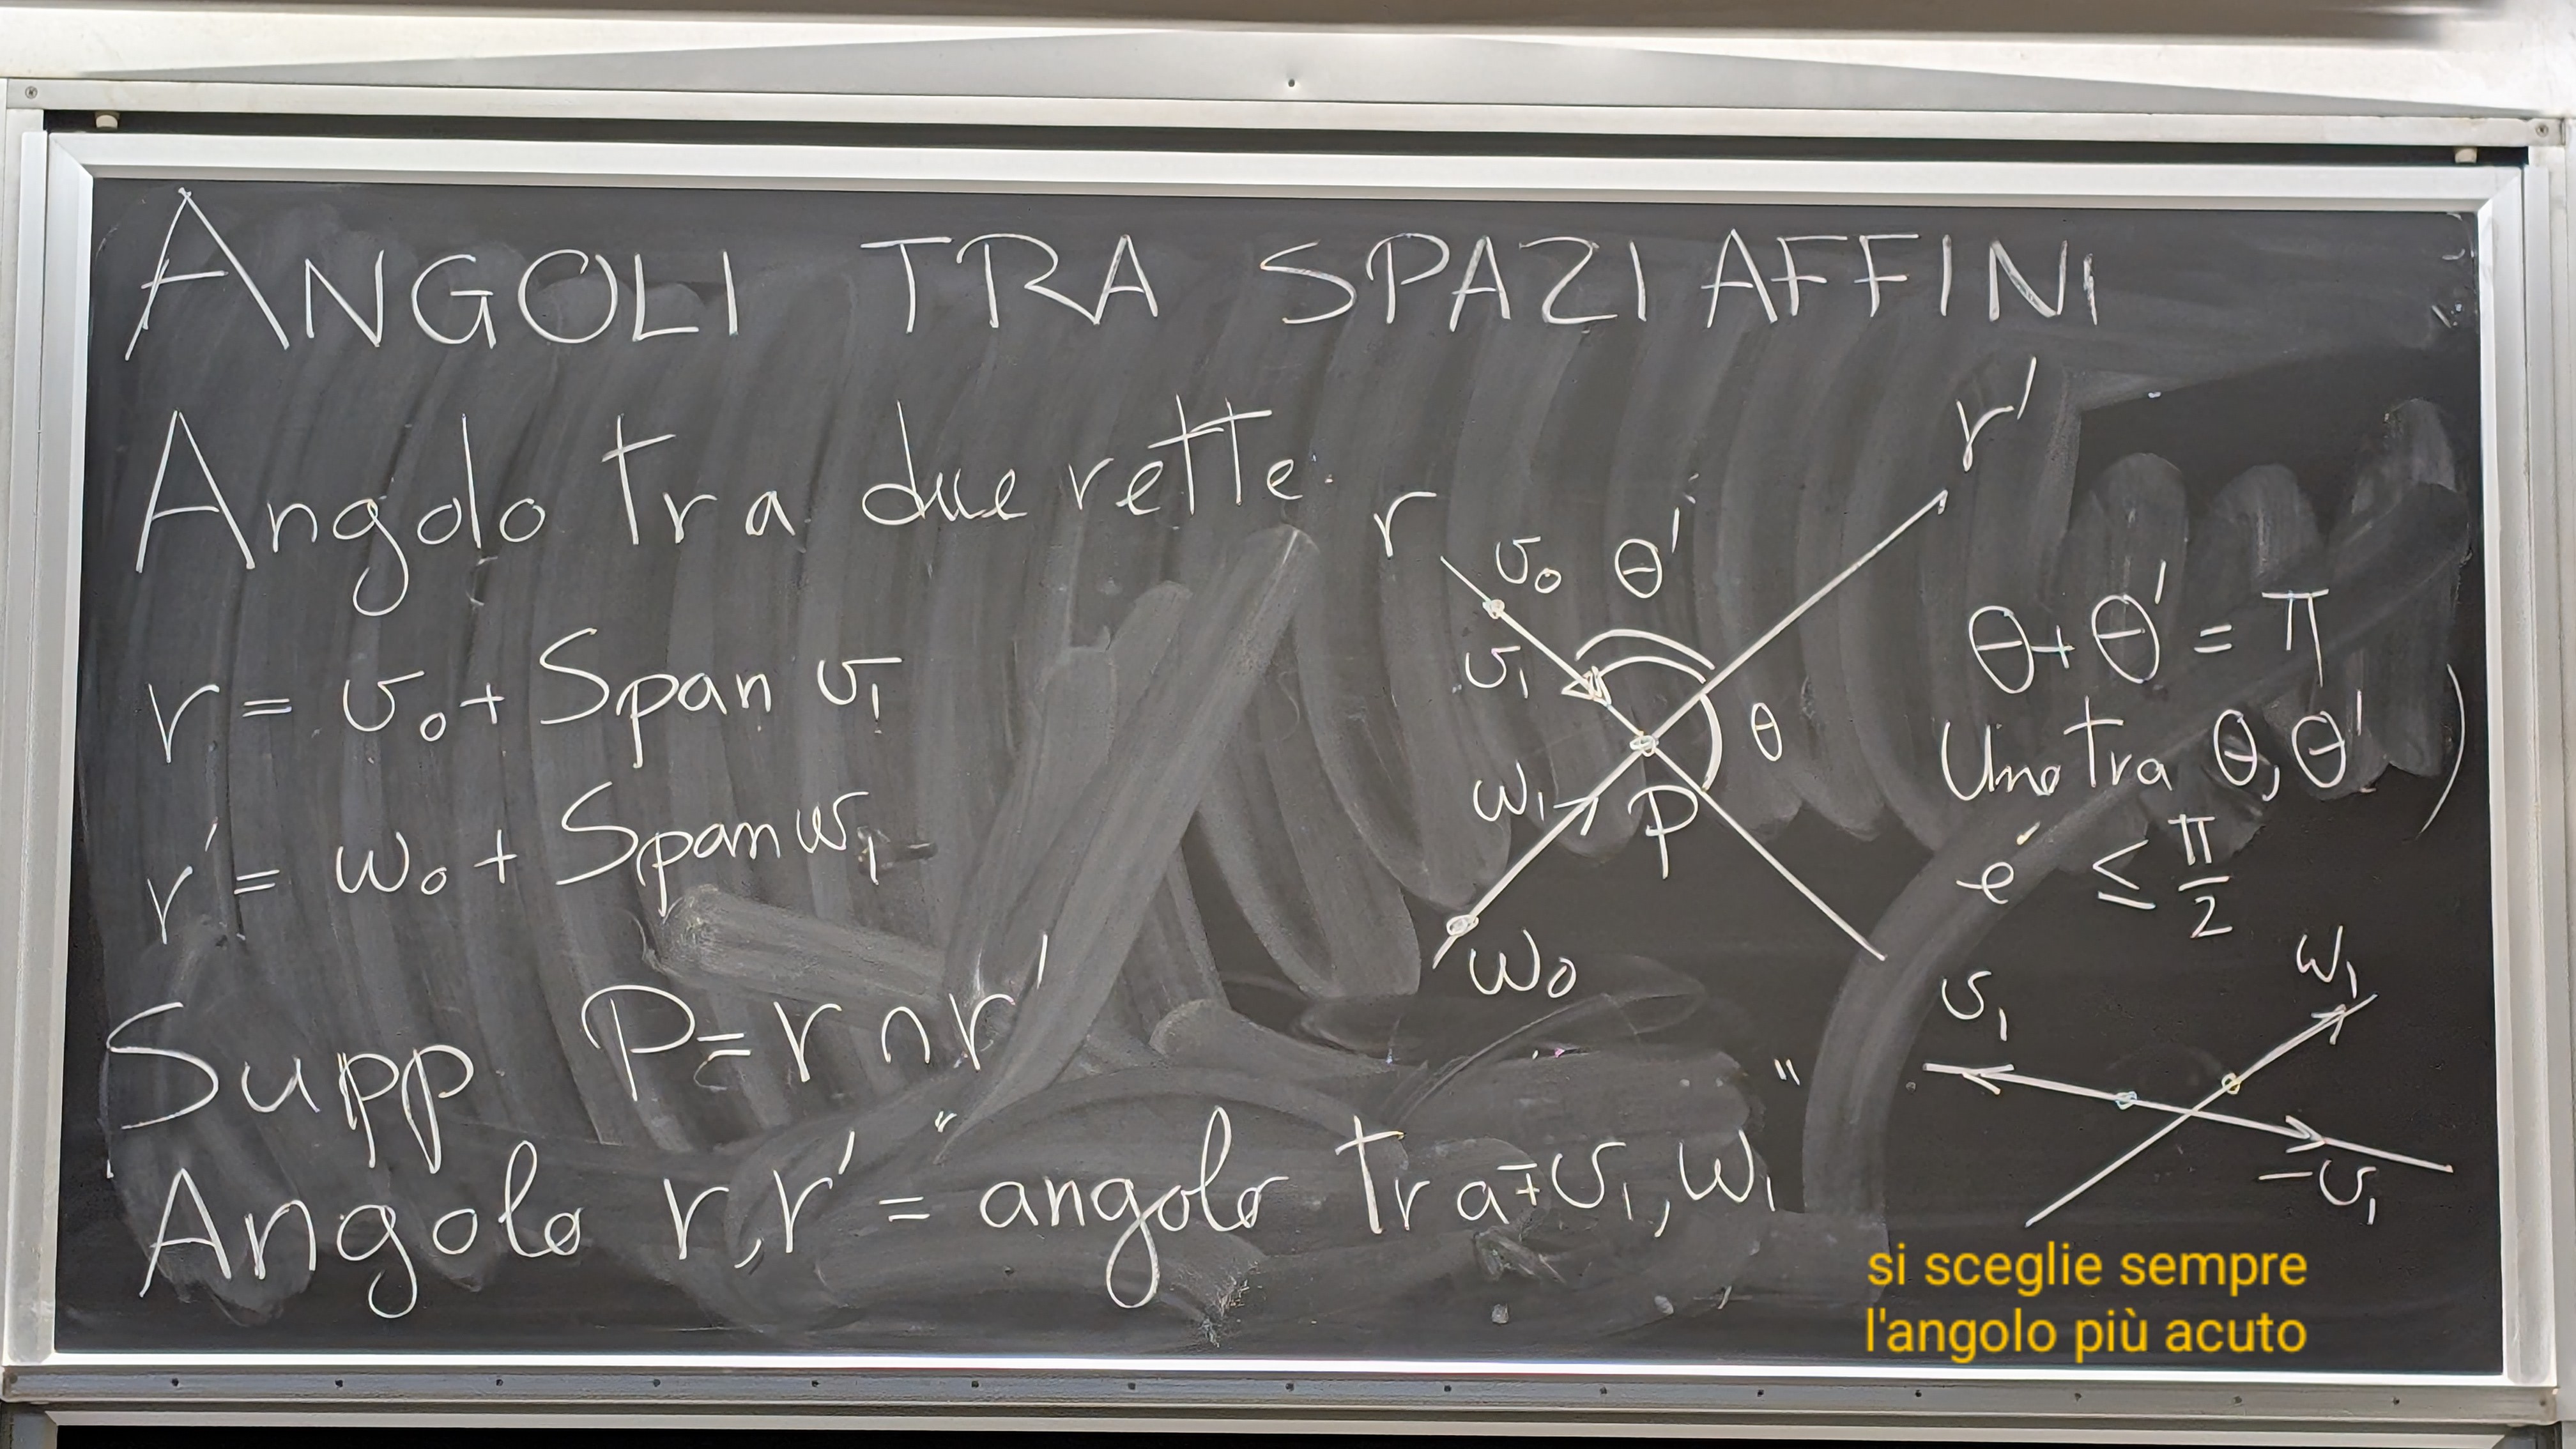 ANGOLI TRA SPAZI AFFINI
Angolo tra due rette.
r = v₀ + Span v₁
r' = w₀ + Span w₁
Supp P = r ∩ r'
Angolo r, r' = "angolo tra ∓v₁, w₁"
r
r'
v₀
θ'
v₁
θ
w₁
P
w₀
θ + θ' = π
Uno tra θ, θ' )
é ≤ π/2
v₁
w₁
-v₁
si sceglie sempre
l'angolo più acuto